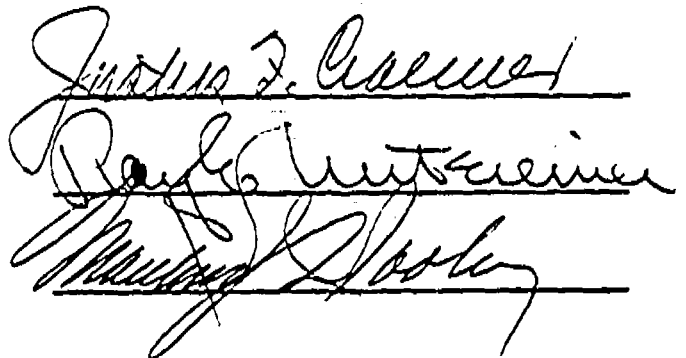 Justus F. Craemer
Ray E. Untereiner
Dooley